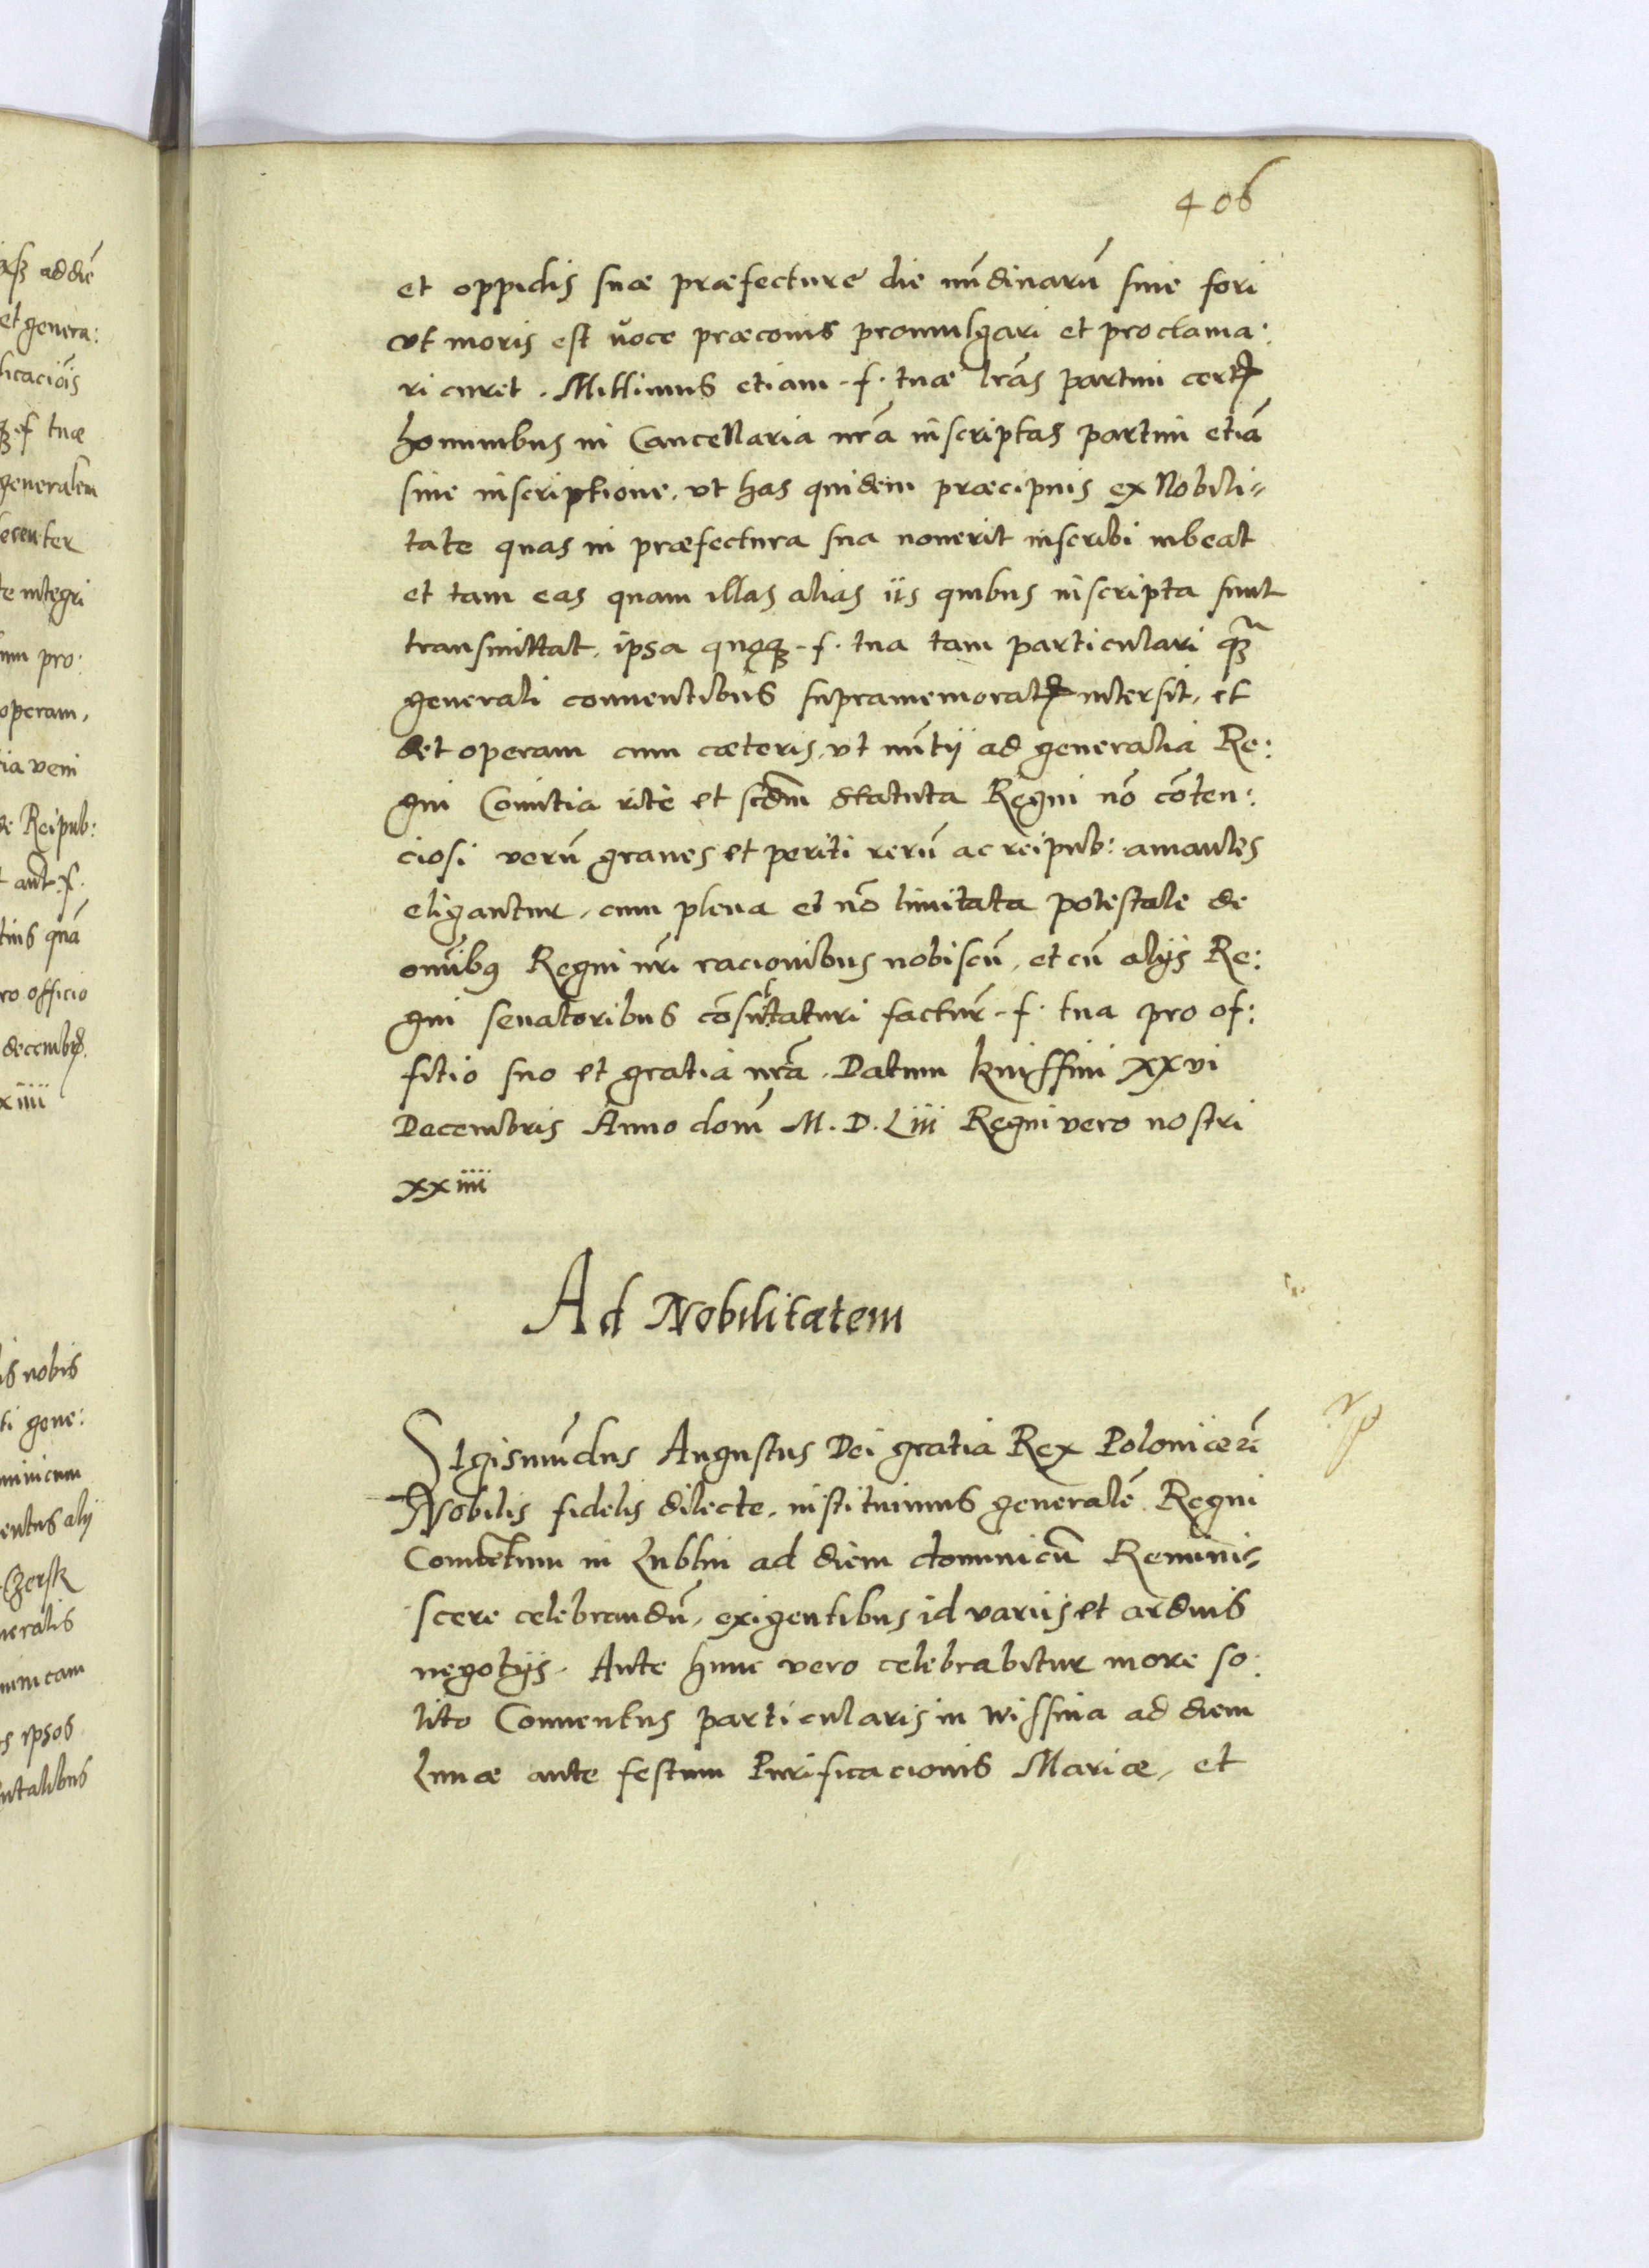 406
et oppidis suæ præfecture die nũdinarũ siue fori
vt moris est uoce præconis promulgari et proclama:
ri curet. Mittimus etiam .f. tuæ lrãs partim cert
hominibus in Cancellaria nrã inscriptas partim etiã
sine inscriptione, vt has quidem præcipuis ex Nobili=
tate quas in præfectura sua nouerit inscribi iubeat
et tam eas quam illas alias iis quibus inscripta sunt
transmittat, ipsa quoqꝫ .f. tua tam particulari qꝫ̃
generali conuentibus supramemorat intersit, et
det operam cum cæteris, vt nũtij ad generalia Re:
gni Comitia ritè et scdm̃ statuta Regni nõ cõten:
ciosi verũ graues et periti rerũ ac reipub: amantes
eligantur, cum plena et nõ limitata potestate de
omĩbꝰ Regni nrĩ racionibus nobiscũ, et cũ alijs Re:
gni senatoribus cõsultaturi facturˀ .f. tua pro of:
fitio suo et gratia nrã. Datum knissini xxvi
Decembris Anno dom̃ M. D. Liii Regni vero nostri
xxiiii
Ad Nobilitatem
SIgismũdus Augustus Dei gratia Rex Poloniæ zc̃
Nobilis fidelis dilecte, instituimus generalẽ Regni
Conuẽtum in Lublin ad diem dominicũ Reminis=
scere celebrandũ, exigentibus id variis et arduis
negotijs. Ante hunc vero celebrabitur more so:
lito Conuentus particularis in wissnia ad diem
Lunæ ante festum Purificacionis Mariæ, et
ad diẽ
et genera:
licaciõis
f tuæ
generalem
te integri
pro:
operam,
ia veni
de Reipub:
ant .f.
quã
ro officio
decembr
xiiii
is nobis
ti gene:
entus alij
Czersk
neralis
s ipsos